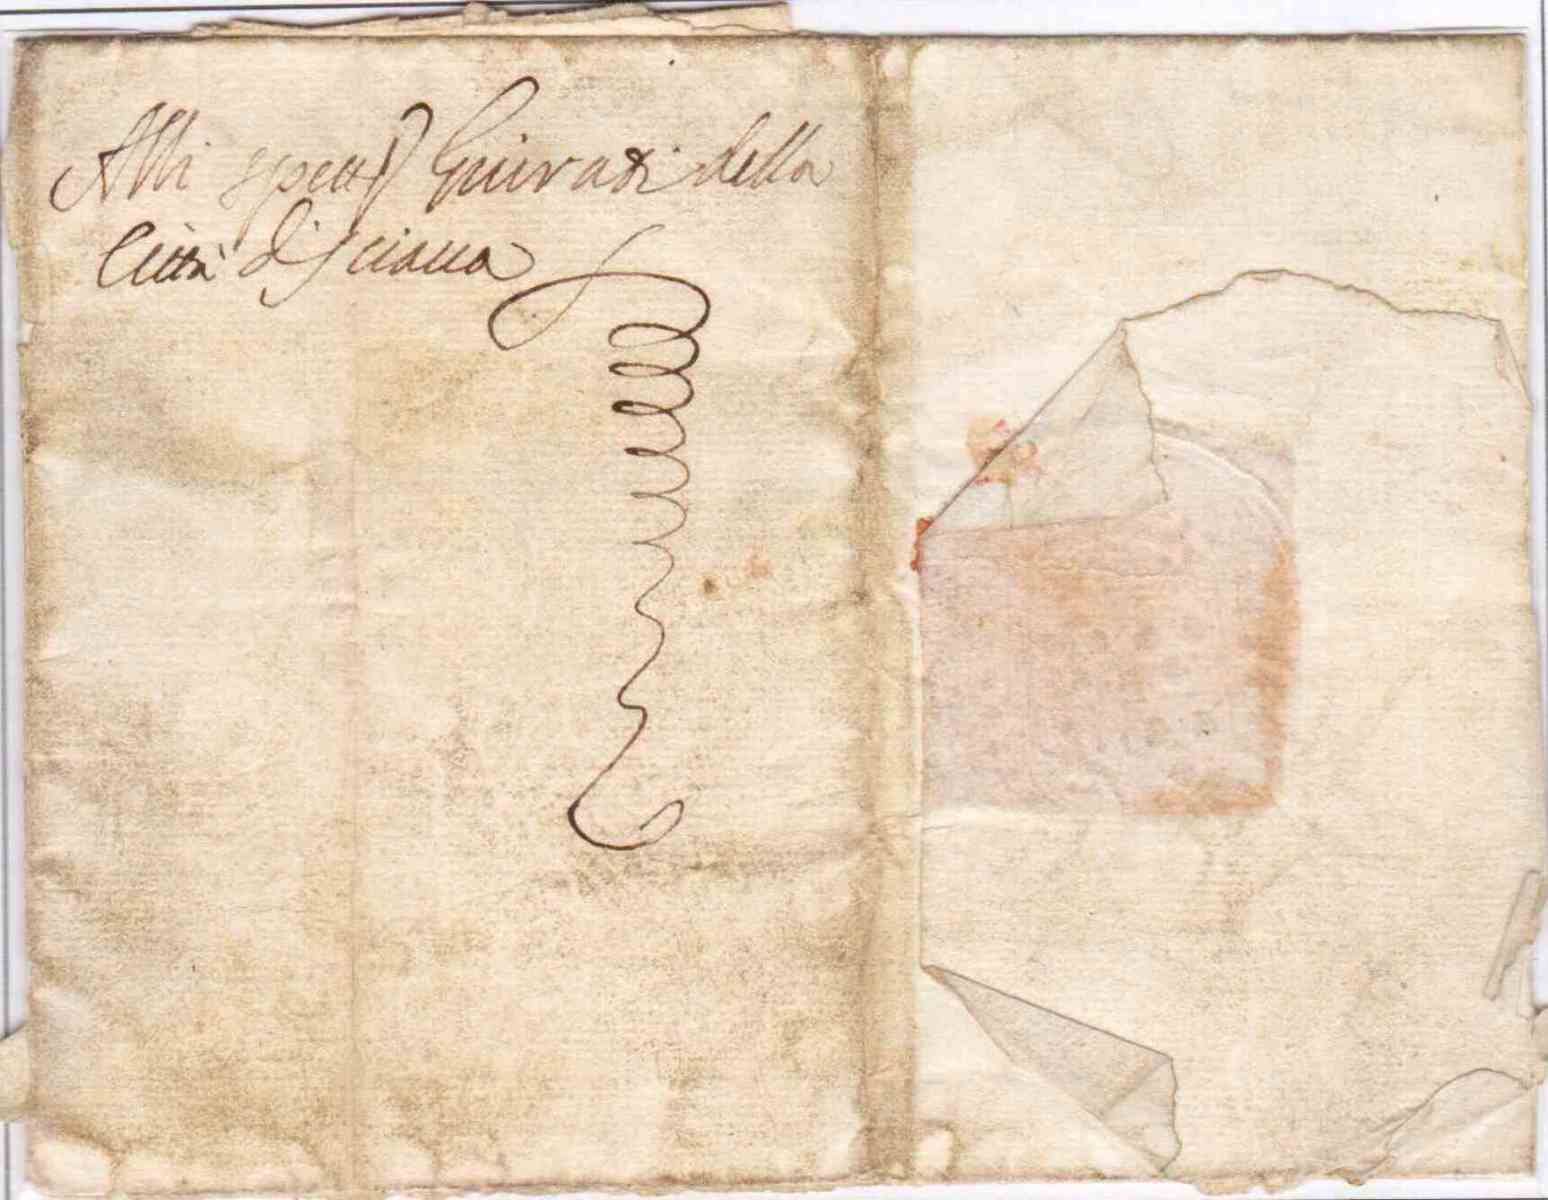 Alli spett Giurati della
Città di Sciacca